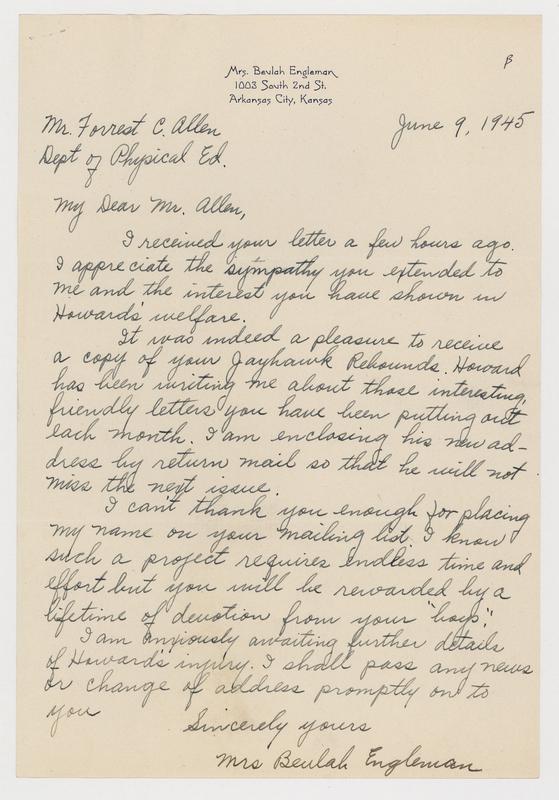 β
Mrs. Beulah Engleman
1003 South 2nd St.
Arkansas City, Kansas
Mr. Forrest C. Allen
June 9, 1945
Dept of Physical Ed.
My Dear Mr. Allen,
I received your letter a few hours ago.
I appreciate the sympathy you extended to
me and the interest you have shown in
Howard's welfare.
It was indeed a pleasure to receive
a copy of your Jayhawk Rebounds. Howard
has been writing me about those interesting,
friendly letters you have been putting out
each month. I am enclosing his new ad-
dress by return mail so that he will not
miss the next issue.
I can't thank you enough for placing
my name on your mailing list. I know
such a project requires endless time and
effort but you will be rewarded by a
lifetime of devotion from your "boys".
I am anxiously awaiting further details
of Howards' injury. I shall pass any news
or change of address promptly on to
you
Sincerely yours
Mrs Beulah Engleman